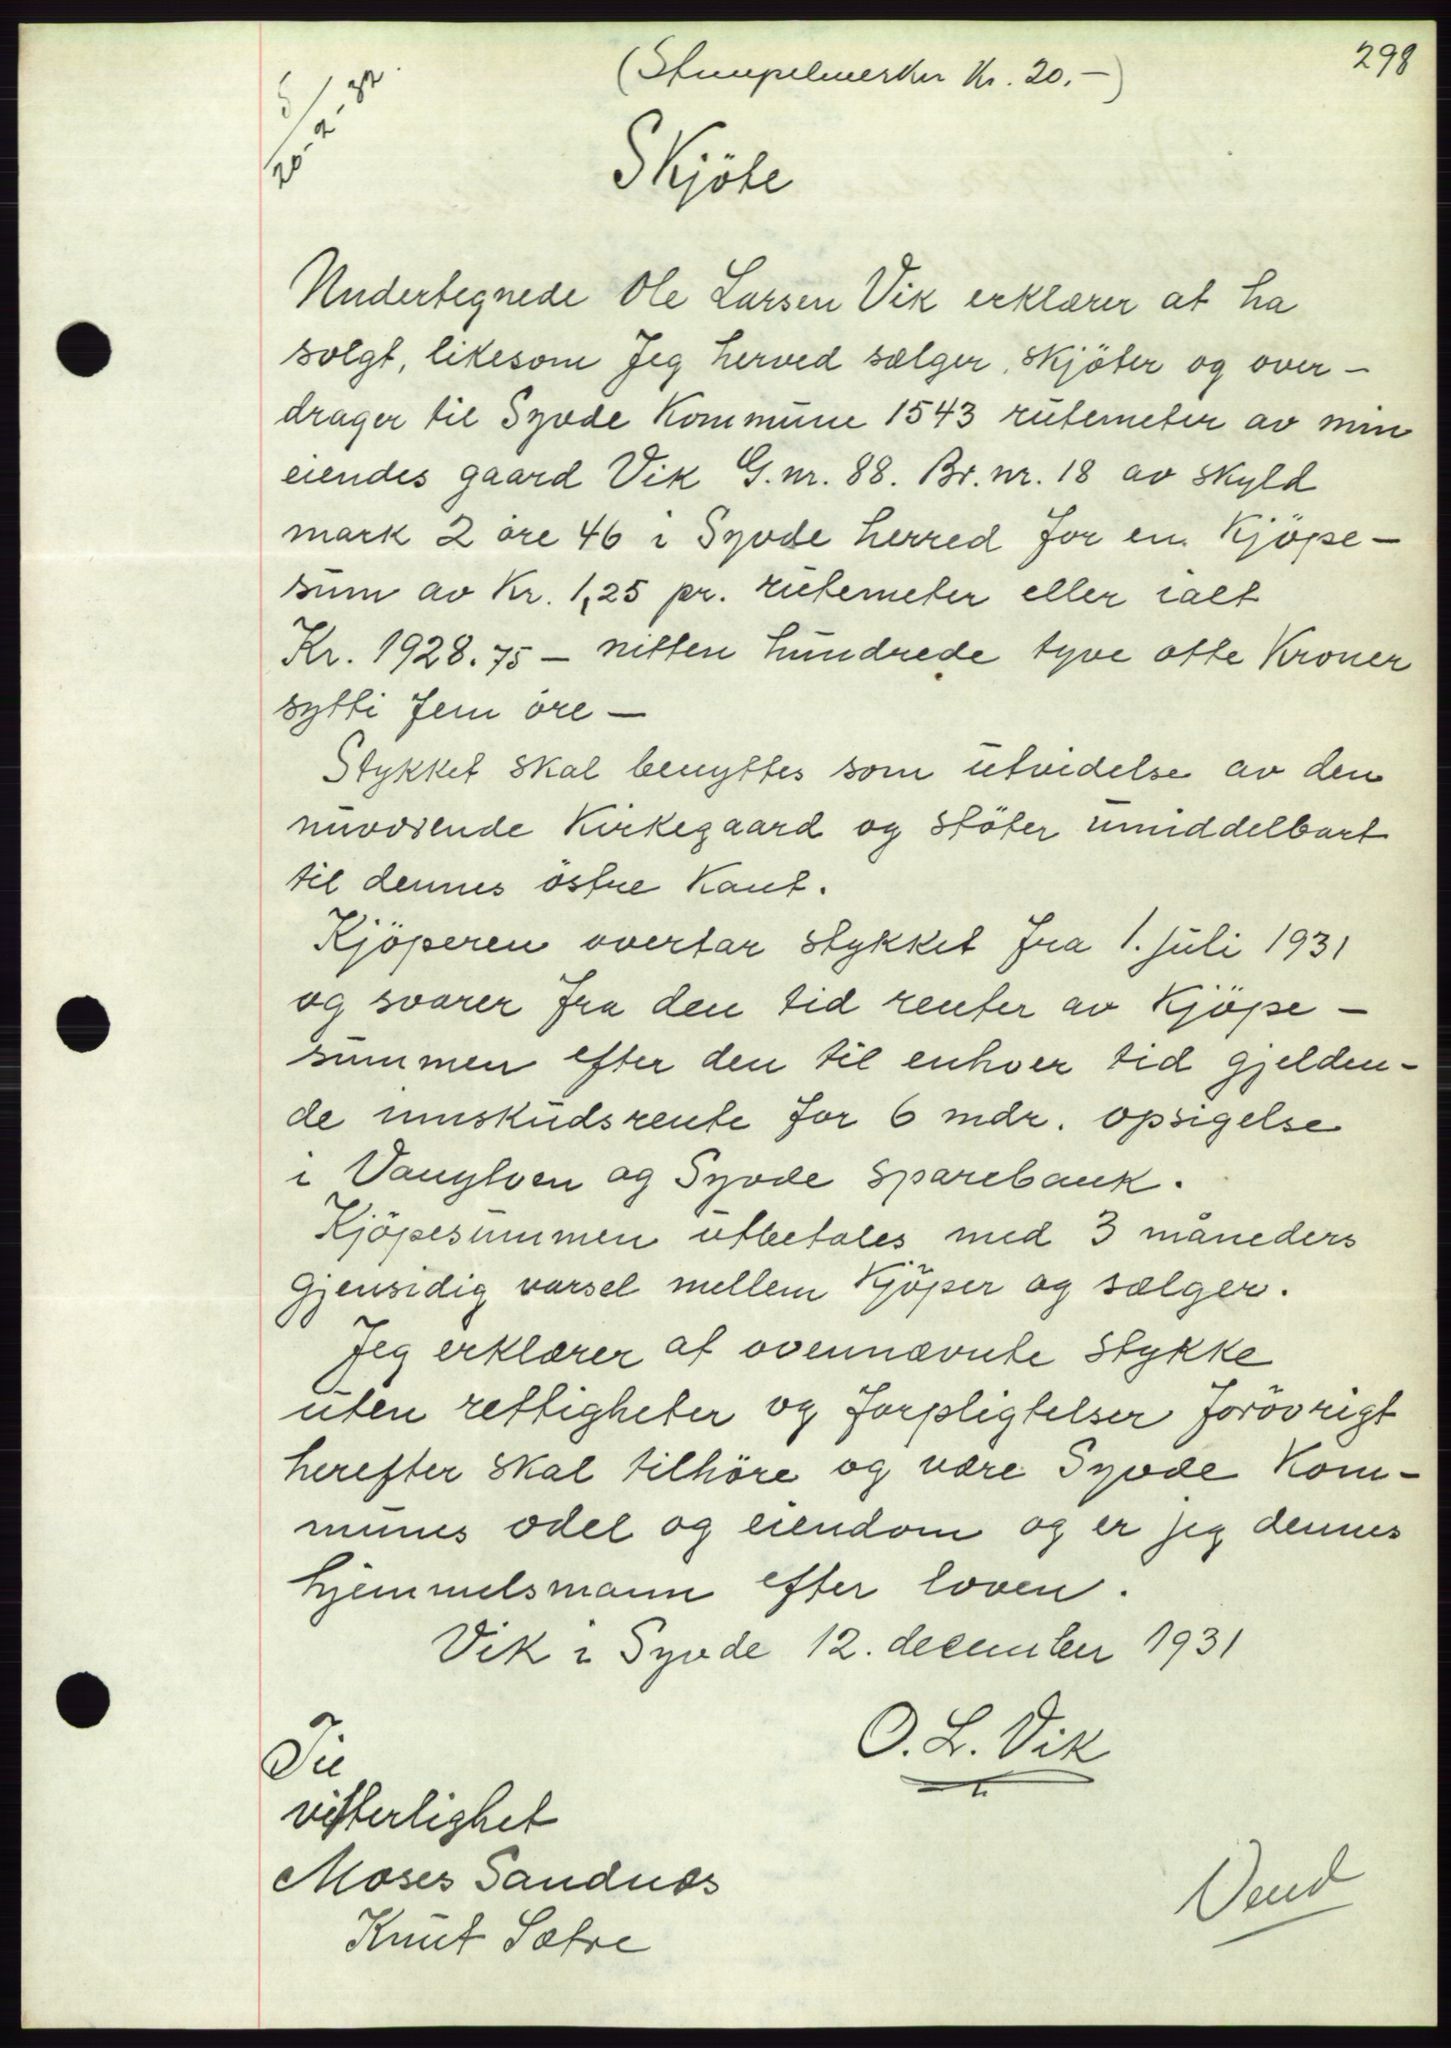 298
(Stempelmerker Kr. 20.-)
5/20-2-32
Skjöte
Undertegnede Ole Larsen Vik erklærer at ha
solgt, likesom Jeg herved sælger, skjöter og over-
drager til Syvde Kommune 1543 rutemeter av min
eiendes gaard Vik G.nr. 88. Br.nr. 18 av skyld
mark 2 öre 46 i Syvde herred for en Kjöpe-
sum av Kr. 1,25 pr. rutemeter eller ialt
Kr. 1928.75 - nitten hundrede tyve otte Kroner
sytti fem öre -
Stykket skal benyttes som utvidelse av den
nuværende Kirkegaard og stöter umiddelbart
til dennes östre Kant.
Kjöperen overtar stykket fra 1. juli 1931
og svarer fra den tid renter av Kjöpe-
summen efter den til enhver tid gjelden-
de innskudsrente for 6 mdr. opsigelse
i Vanylven og Syvde sparebank.
Kjöpesummen utbetales med 3 måneders
gjensidig varsel mellem Kjöper og sælger.
Jeg erklærer at ovennævnte stykke
uten rettigheter og forpligtelser forövrigt
herefter skal tilhöre og være Syvde Kom-
munes odel og eiendom og er jeg dennes
hjemmelsmann efter loven.
Vik i Syvde 12. december 1931
O. L. Vik
Til
vitterlighet
Moses Sandnæs
Knut Sætre
Vend